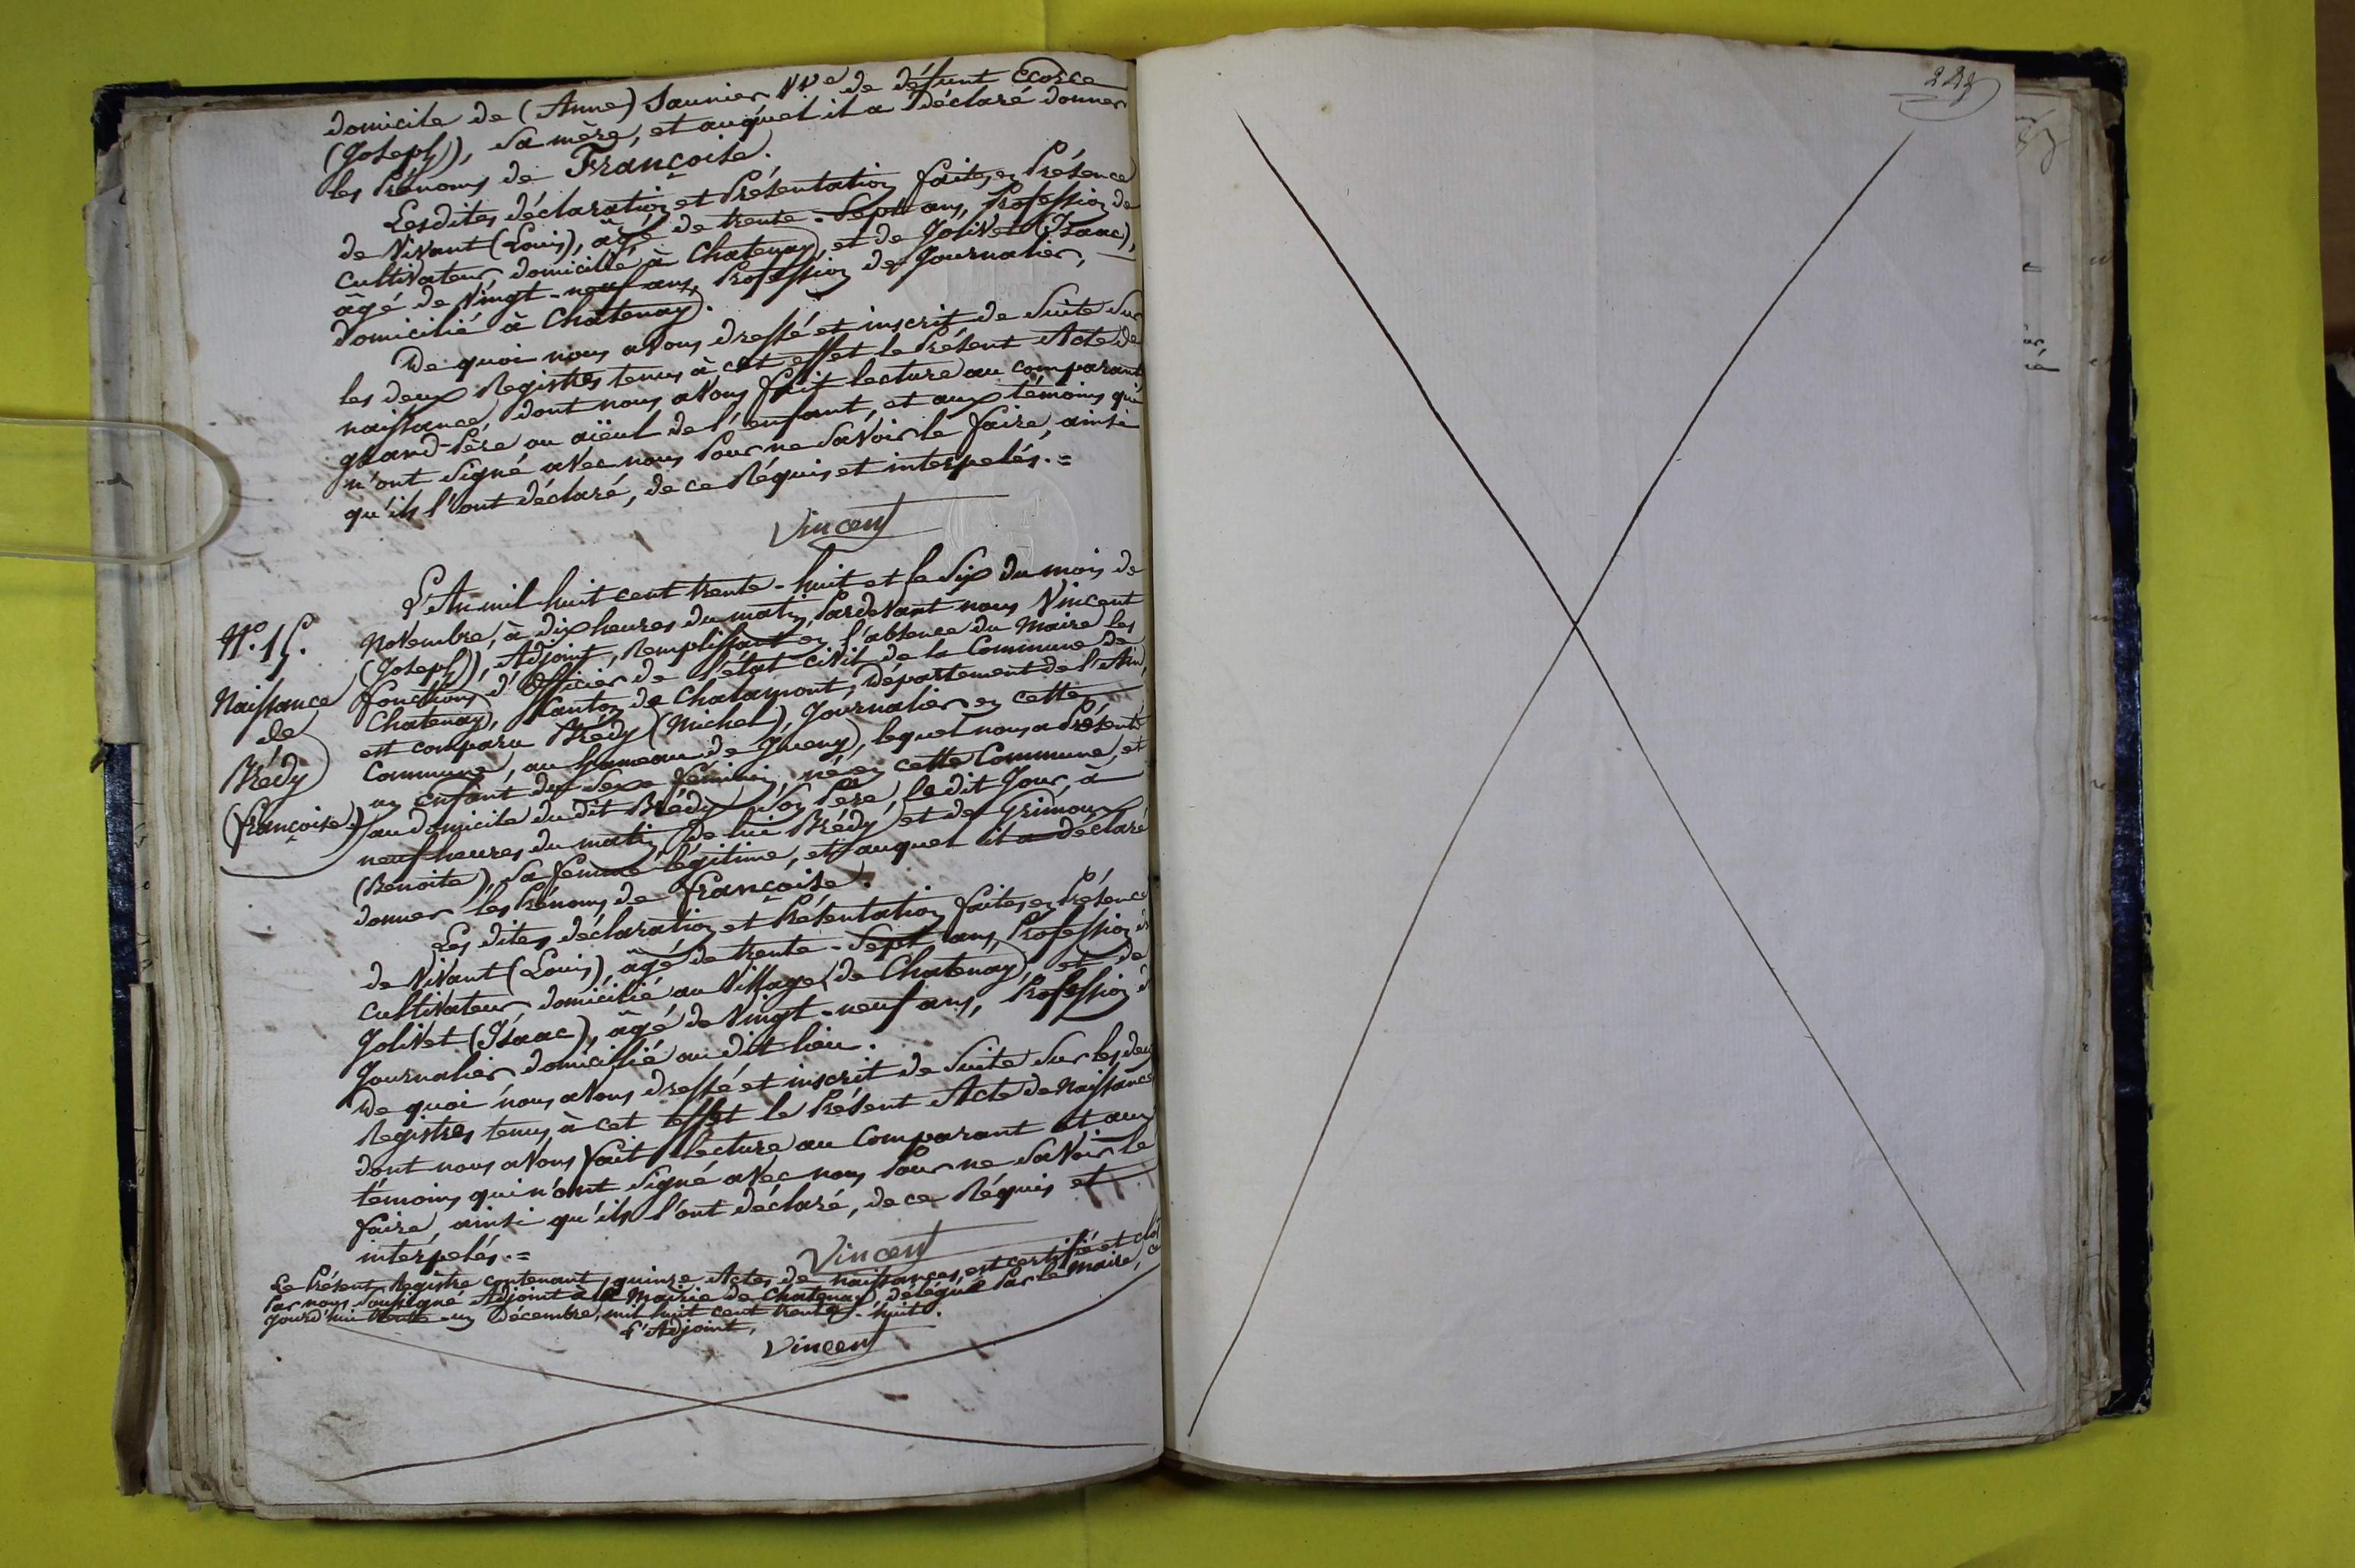 domicile de (Anne) Saunier Vve de défunt Ecosse
(Joseph), sa mère, et auquel il a déclaré donner
les Prénoms de Françoise.
Lesdites déclaration et Présentation faites en Présence
de Vivant (Louis), âgé de trente-sept ans, Profession de
cultivateur, domicilié à Chatenay, et de Jolivet (Isaac),
âgé de Vingt-neuf ans, Profession de Journalier,
domicilié à Chatenay.
De quoi nous avons dressé et inscrit de suite sur
les deux Registres tenus à cet effet le Présent Acte de
naissance, dont nous avons fait lecture au comparant
grand-Père ou aïeul de l'enfant, et aux témoins qui
n'ont signé avec nous Pour ne savoir le faire, ainsi
qu'ils l'ont déclaré, de ce Réquis et interpelés.=
Vincent
L'An mil huit cent trente-huit et le six du mois de
N°. 15.
Novembre, à dix heures du matin, Pardevant nous Vincent
(Joseph), Adjoint, Remplissant en l'absence du Maire les
fonctions d'Officier de l'état civil de la Commune de
Chatenay, Canton de Chalamont, Département de l'Ain,
est comparu Brédy (Michel), Journalier en cette
Commune, au hameau de , lequel nous a Présenté
un enfant du sexe féminin, né en cette Commune, et
au domicile du dit Brédy son Père, ledit Jour, à
neuf heures du matin, de lui Brédy et de Grimoux
(Benoite), sa femme légitime, et auquel il a déclaré
donner les Prénoms de Françoise.
Naissance
de
Brédy
(Françoise.)
Les dites déclaration et Présentation faites en Présence
de Vivant (Louis), âgé de trente-sept ans, Profession de
cultivateur, domicilié au Village de Chatenay, et de
Jolivet (Isaac), âgé de Vingt-neuf ans, Profession de
Journalier domicilié au dit lieu.
De quoi nous avons dressé et inscrit de suite sur les deux
Registres tenus à cet effet le Présent Acte de Naissance
dont nous avons fait lecture au Comparant et aux
témoins qui n'ont signé avec nous Pour ne savoir le
faire, ainsi qu'ils l'ont déclaré, de ce Réquis et
interpelés.=
Vincent
Le Présent Registre contenant quinze Actes de naissances, est certifié et clos
Par nous soussigné Adjoint à la Mairie de Chatenay, délégué Par le Maire, ce
Jourd'hui trente-un Décembre, mil huit cent trente-huit.
L'Adjoint,
Vincent